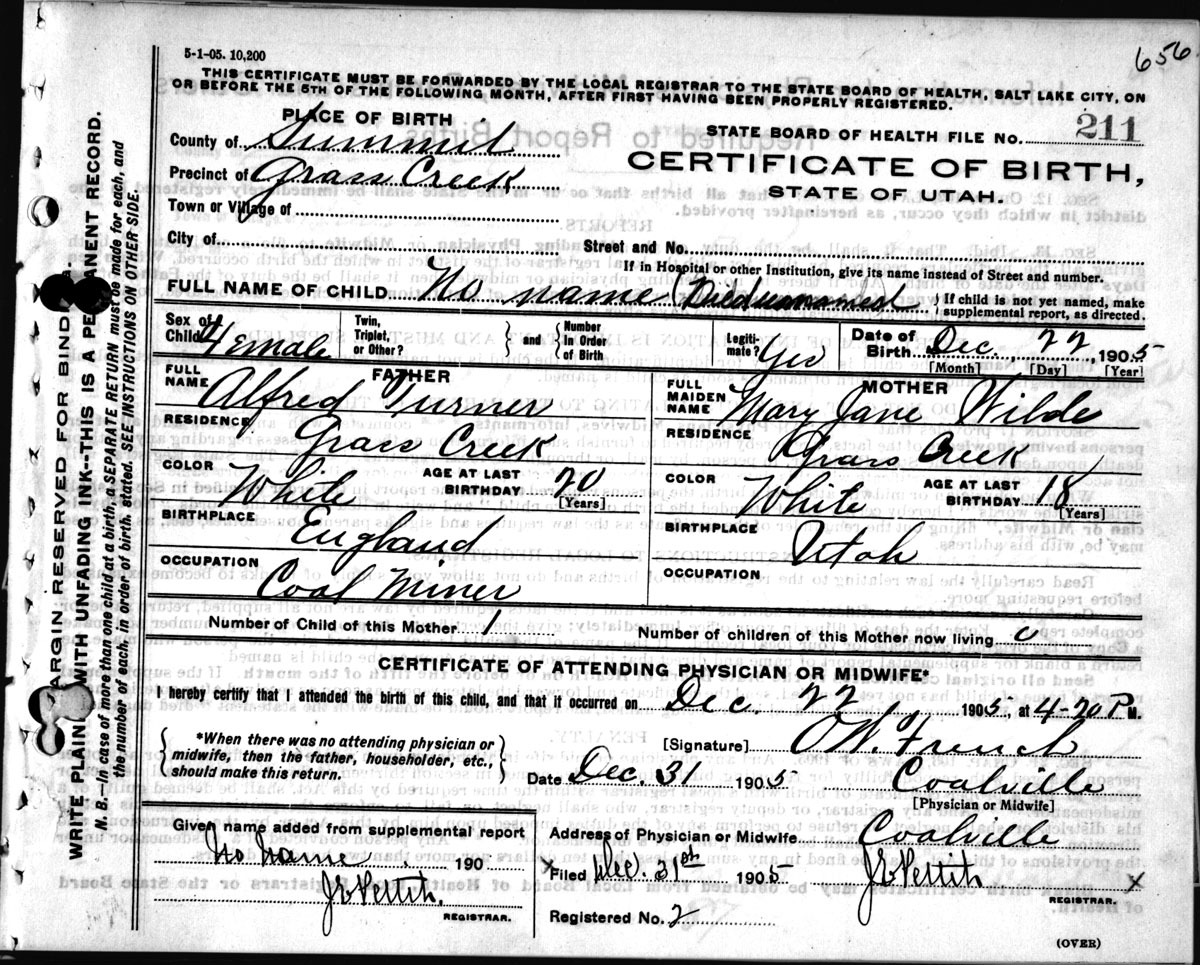 656
5-1-05. 10,200
THIS CERTIFICATE MUST BE FORWARDED BY THE LOCAL REGISTRAR TO THE STATE BOARD OF HEALTH, SALT LAKE CITY, ON
OR BEFORE THE 5TH OF THE FOLLOWING MONTH, AFTER FIRST HAVING BEEN PROPERLY REGISTERED.
PLACE OF BIRTH
STATE BOARD OF HEALTH FILE NO. 211
County of Summit
CERTIFICATE OF BIRTH,
Precinct of Grass Creek
STATE OF UTAH.
Town or Village of
City of Street and No.
If in Hospital or other Institution, give its name instead of Street and number.
FULL NAME OF CHILD No name (Died unnamed) If child is not yet named, make supplemental report, as directed.
Sex of Child Female Twin, Triplet, or Other? and Number in Order of Birth Legitimate? Yes Date of Birth Dec. 22 1905
[Month] [Day] [Year]
FATHER
FULL NAME Alfred Turner
RESIDENCE Grass Creek
COLOR White AGE AT LAST BIRTHDAY 20 [Years]
BIRTHPLACE England
OCCUPATION Coal Miner
MOTHER
FULL MAIDEN NAME Mary Jane Wilde
RESIDENCE Grass Creek
COLOR White AGE AT LAST BIRTHDAY 18 [Years]
BIRTHPLACE Utah
OCCUPATION
Number of Child of this Mother 1 Number of children of this Mother now living 0
CERTIFICATE OF ATTENDING PHYSICIAN OR MIDWIFE*
I hereby certify that I attended the birth of this child, and that it occurred on Dec. 22 1905, at 4-20 P.M.
*When there was no attending physician or
midwife, then the father, householder, etc.,
should make this return.
[Signature] O.W. French
Date Dec. 31 1905 Coalville
[Physician or Midwife]
Given name added from supplemental report
No Name 190
REGISTRAR.
Address of Physician or Midwife Coalville
Filed Dec. 31st 1905
REGISTRAR.
Registered No. 2
(OVER)
MARGIN RESERVED FOR BINDING.
WRITE PLAINLY WITH UNFADING INK--THIS IS A PERMANENT RECORD.
N. B.—In case of more than one child at a birth, a SEPARATE RETURN must be made for each, and
the number of each, in order of birth, stated. SEE INSTRUCTIONS ON OTHER SIDE.